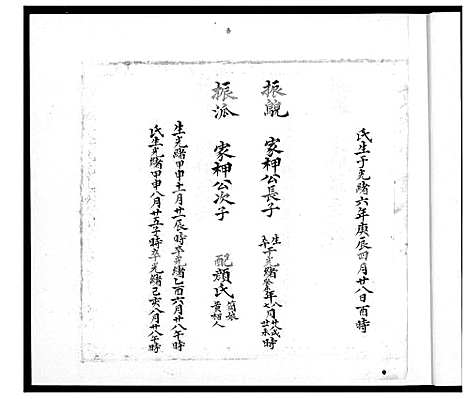 氏生于光緒六年庚辰四月廿八日酉時
振 家神公長子 生卒于光緒 年 八七月廿 廿 未
振派 家神公次子 配顏氏 黃 人
生光緒甲申十一月廿一辰時卒光緒乙酉六月廿八午時
氏生光緒甲申八月廿五子時卒光緒己亥八月廿八午時